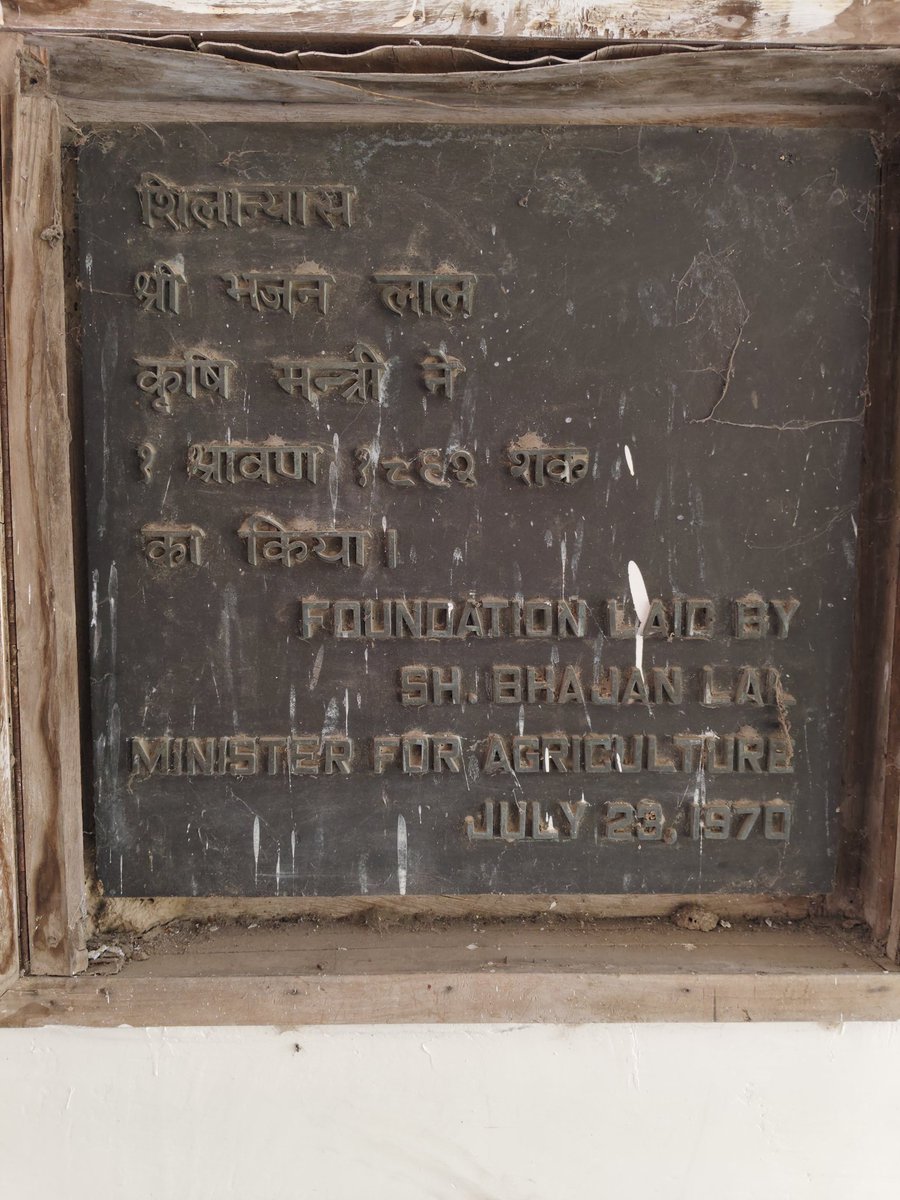 शिलान्यास
श्री भजन लाल
कृषि मन्त्री ने
१ श्रावण १८९२ शक
का किया।
FOUNDATION LAID BY
SH. BHAJAN LAL
MINISTER FOR AGRICULTURE
JULY 23, 1970